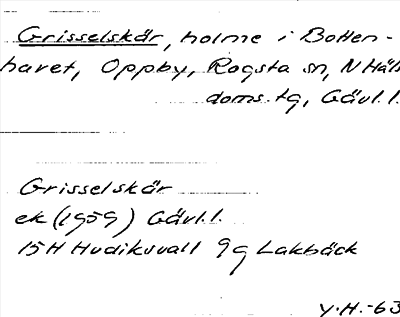 Grisselskär, holme i Botten-
havet, Oppby, Rogsta sn, N Häls
doms. tg, Gävl.l.
Grisselskär
ek (1959) Gävl.l.
15H Hudiksvall 9g Lakbäck
Y.H.-63